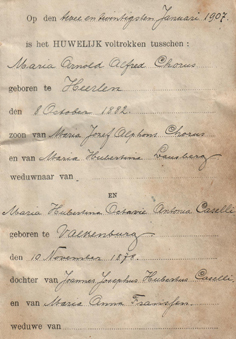 Op den twee en twintigsten Januari 1907.
is het HUWELIJK voltrokken tusschen:
Maria Arnold Alfred Chorus
geboren te Heerlen
den 8 October 1882.
zoon van Maria Jozef Alphons Chorus
en van Maria Hubertina Lausberg
weduwnaar van
EN
Maria Hubertina Octavie Antonia Caselli
geboren te Valkenburg
den 10 November 1879.
dochter van Joannes Josephus Hubertus Caselli,
en van Maria Anna Franssen.
weduwe van